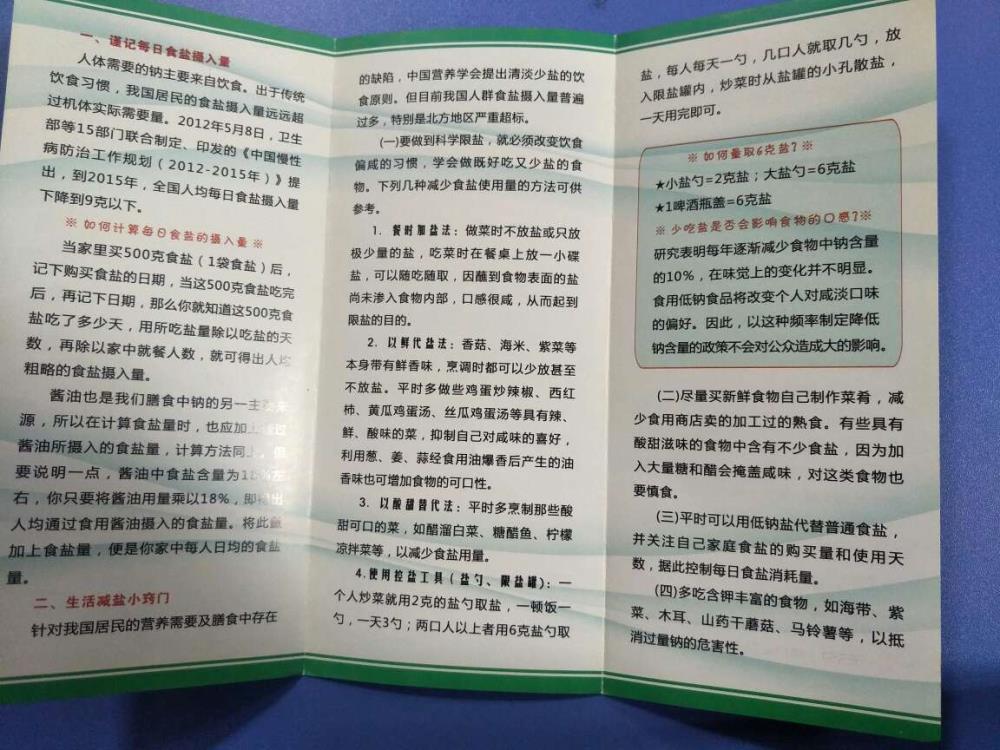 一、谨记每日食盐摄入量
人体需要的钠主要来自饮食。出于传统
饮食习惯，我国居民的食盐摄入量远远超
过机体实际需要量。2012年5月8日，卫生
部等15部门联合制定、印发的《中国慢性
病防治工作规划（2012-2015年）》提
出，到2015年，全国人均每日食盐摄入量
下降到9克以下。
※ 如何计算每日食盐的摄入量 ※
当家里买500克食盐（1袋食盐）后，
记下购买食盐的日期，当这500克食盐吃完
后，再记下日期，那么你就知道这500克食
盐吃了多少天，用所吃盐量除以吃盐的天
数，再除以家中就餐人数，就可得出人均
粗略的食盐摄入量。
酱油也是我们膳食中钠的另一主要来
源，所以在计算食盐量时，也应加上通过
酱油所摄入的食盐量，计算方法同上。但
要说明一点，酱油中食盐含量为18%左
右，你只要将酱油用量乘以18%，即得出
人均通过食用酱油摄入的食盐量。将此量
加上食盐量，便是你家中每人日均的食盐
量。
二、生活减盐小窍门
针对我国居民的营养需要及膳食中存在
的缺陷，中国营养学会提出清淡少盐的饮
食原则。但目前我国人群食盐摄入量普遍
过多，特别是北方地区严重超标。
(一)要做到科学限盐，就必须改变饮食
偏咸的习惯，学会做既好吃又少盐的食
物。下列几种减少食盐使用量的方法可供
参考。
1. 餐时加盐法：做菜时不放盐或只放
极少量的盐，吃菜时在餐桌上放一小碟
盐，可以随吃随取，因蘸到食物表面的盐
尚未渗入食物内部，口感很咸，从而起到
限盐的目的。
2. 以鲜代盐法：香菇、海米、紫菜等
本身带有鲜香味，烹调时都可以少放甚至
不放盐。平时多做些鸡蛋炒辣椒、西红
柿、黄瓜鸡蛋汤、丝瓜鸡蛋汤等具有辣、
鲜、酸味的菜，抑制自己对咸味的喜好，
利用葱、姜、蒜经食用油爆香后产生的油
香味也可增加食物的可口性。
3. 以酸甜替代法：平时多烹制那些酸
甜可口的菜，如醋溜白菜、糖醋鱼、柠檬
凉拌菜等，以减少食盐用量。
4.使用控盐工具（盐勺、限盐罐）：一
个人炒菜就用2克的盐勺取盐，一顿饭一
勺，一天3勺；两口人以上者用6克盐勺取
盐，每人每天一勺，几口人就取几勺，放
入限盐罐内，炒菜时从盐罐的小孔散盐，
一天用完即可。
※ 如何量取6克盐？※
★小盐勺=2克盐；大盐勺=6克盐
★1啤酒瓶盖=6克盐
※ 少吃盐是否会影响食物的口感？※
研究表明每年逐渐减少食物中钠含量
的10%，在味觉上的变化并不明显。
食用低钠食品将改变个人对咸淡口味
的偏好。因此，以这种频率制定降低
钠含量的政策不会对公众造成大的影响。
(二)尽量买新鲜食物自己制作菜肴，减
少食用商店卖的加工过的熟食。有些具有
酸甜滋味的食物中含有不少食盐，因为加
入大量糖和醋会掩盖咸味，对这类食物也
要慎食。
(三)平时可以用低钠盐代替普通食盐，
并关注自己家庭食盐的购买量和使用天
数，据此控制每日食盐消耗量。
(四)多吃含钾丰富的食物，如海带、紫
菜、木耳、山药干蘑菇、马铃薯等，以抵
消过量钠的危害性。